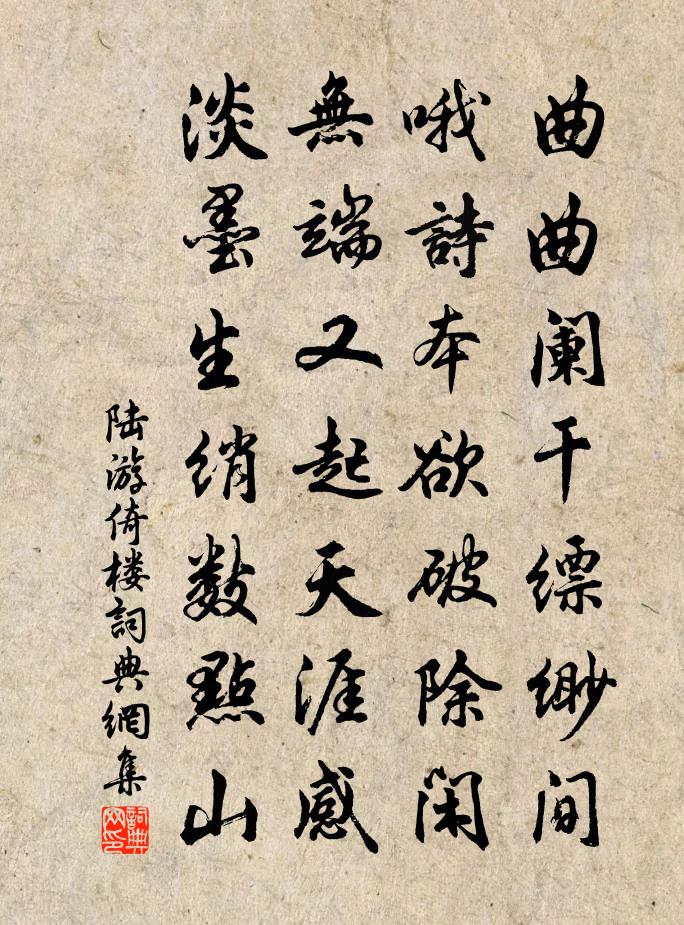 曲曲阑干缥缈间
哦詩本欲破除闲
無端又起天涯感
淡墨生绡数點山
陆游倚楼詞典網集
詞典网印